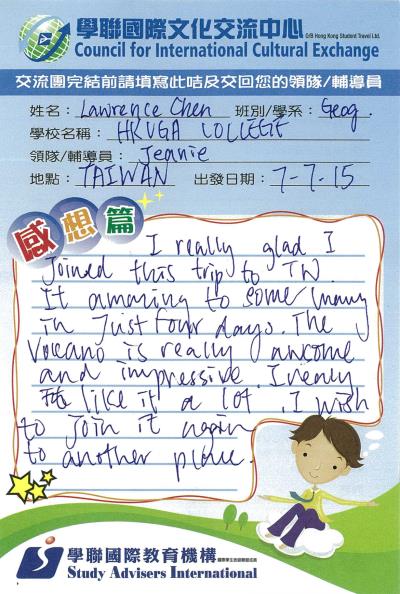 學聯國際文化交流中心 O/B Hong Kong Student Travel Ltd.
Council for International Cultural Exchange
交流團完結前請填寫此咭及交回您的領隊/輔導員
姓名： Lawrence Chen 班別/學系： Geog.
學校名稱： HKUGA COLLEGE
領隊/輔導員： Jeanie
地點： TAIWAN 出發日期： 7-7-15
感想篇
I really glad I
Joined this trip to TW.
It amazing to some many
in Just four days. The
Volcano is really awcome
and impressive. I realy
like it a lot. I wish
to join it again
to another place.
學聯國際教育機構
Study Advisers International